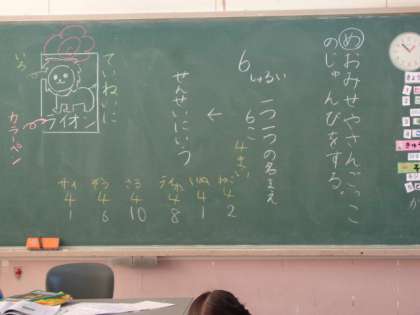 めおみせやさんごっこ
のじゅんびをする。
6しゅるい
一つ一つの名まえ
6こ
4まい
←
せんせいにいう
ていねいに
いろ
ライオン
カラーペン
サイ
4
1
ぞう
4
6
4
10
ライオン
4
8
いぬ
4
1
ねこ
4
2